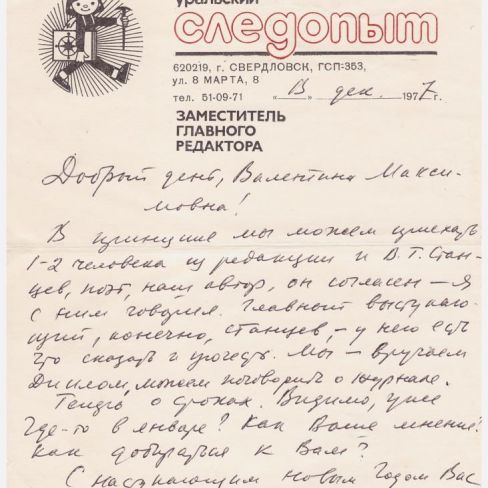 уральский
следопыт
620219, г. СВЕРДЛОВСК, ГСП-353,
ул. 8 МАРТА, 8
тел. 51-09-71 «13» дек. 1977 г.
ЗАМЕСТИТЕЛЬ
ГЛАВНОГО
РЕДАКТОРА
Добрый день, Валентина Макси-
мовна!
В принципе мы можем приехать
1-2 человека из редакции и В.Т. Стан-
цев, поэт, наш автор, он согласен — я
с ним говорил. Главный выступаю-
щий, конечно, Станцев, — у него есть
что сказать и прочесть. Мы — вручаем
Диплом, можем поговорить о журнале.
Теперь о сроках. Видимо, уже
где-то в январе? Как Ваше мнение?
Как добираться к Вам?
С наступающим Новым годом Вас